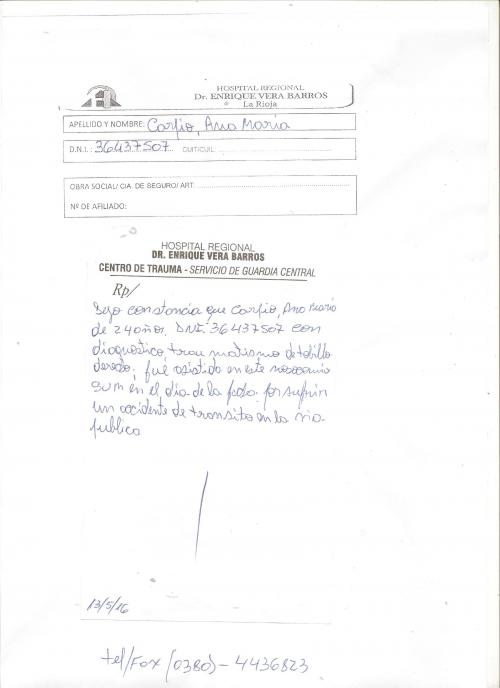 HOSPITAL REGIONAL
Dr. ENRIQUE VERA BARROS
La Rioja
APELLIDO Y NOMBRE: Carpio, Ana Maria
D.N.I.: 36437507 CUIT/CUIL:
OBRA SOCIAL/ CIA. DE SEGURO/ ART.
Nº DE AFILIADO:
HOSPITAL REGIONAL
DR. ENRIQUE VERA BARROS
CENTRO DE TRAUMA - SERVICIO DE GUARDIA CENTRAL
Rp/
Dejo constancia que Carpio, Ana Maria
de 24 años, DNI: 36437507 con
diagnostico, traumatismo de tobillo
derecho, fué asistido en este nosocomio
en el día de la fecha por sufrir
un accidente de transito en la via
publica
13/5/16
tel/Fax (0380) - 4436823